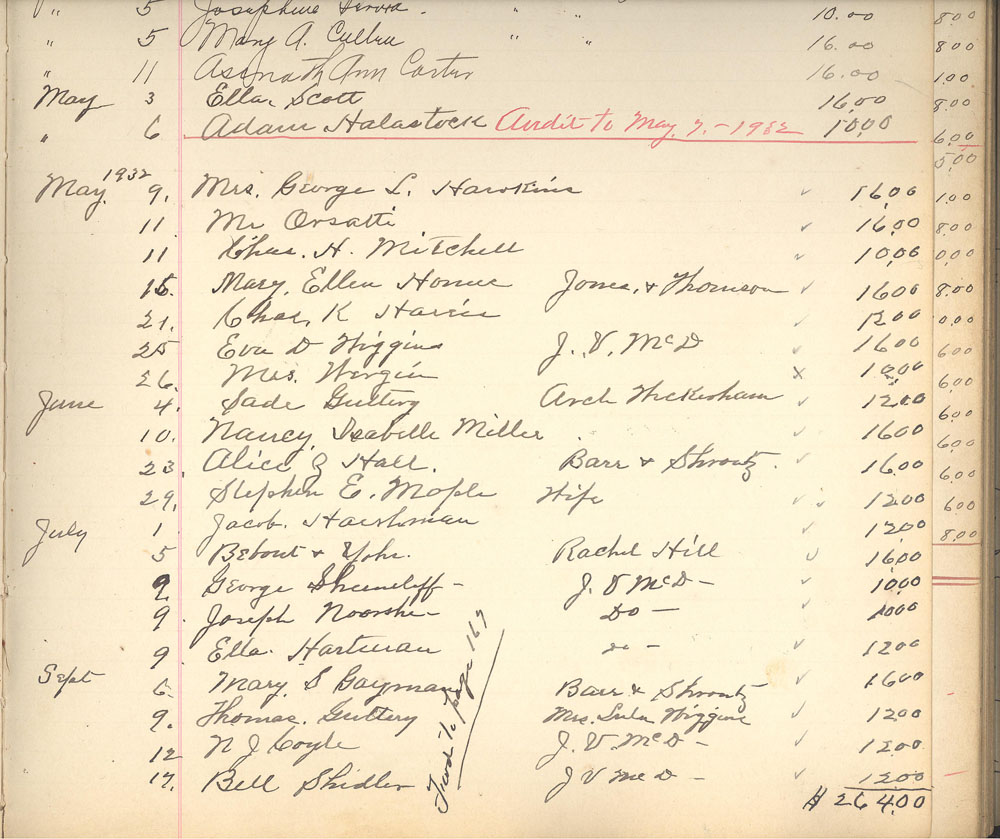 " 5 Josephine " " 10.00 8.00
" 5 Mary A. " " 16.00 8.00
" 11 Asenath Ann Carter 16.00 1.00
May 3 Ella Scott 16.00 8.00
" 6 Adam Halastock Audit to May. 7. - 1932 10.00 6.00
5.00
1932
May. 9. Mrs. George L. Hawkins ✓ 16.00 1.00
11 Mr Orsatti ✓ 16.00 8.00
11 Chas. H. Mitchell ✓ 10.00 0.00
16. Mary. Ellen Jones, & Thomson ✓ 16.00 8.00
21. Chas, K Harris ✓ 12.00 0.00
25 Eva D Wiggins J. V. McD ✓ 16.00 6.00
26. Mrs. x 12.00 6.00
June 4. Sade Guttery Arch Wickersham ✓ 12.00 6.00
10. Nancy, Isabelle Miller ✓ 16.00 6.00
23. Alice Hall. Barr & Shrontz. ✓ 16.00 6.00
29. Stephen E. Mople Wife ✓ 12.00 6.00
July 1 Jacob. Harshman ✓ 12.00 8.00
5 Bebout & Yohe. Rachel Hill ✓ 16.00
9 George J. V McD - ✓ 10.00
9. Joseph Do - ✓ 10.00
9 Ella. Hartman do - ✓ 12.00
Sept 6. Mary. S Gayman Barr & Shrontz ✓ 16.00
9. Thomas. Guttery Mrs. Lula Wiggins ✓ 12.00
12 N J Coyle J. V. McD - ✓ 12.00
17. Bell Shidler J V McD - ✓ 12.00
$ 264.00
Turn to page 169